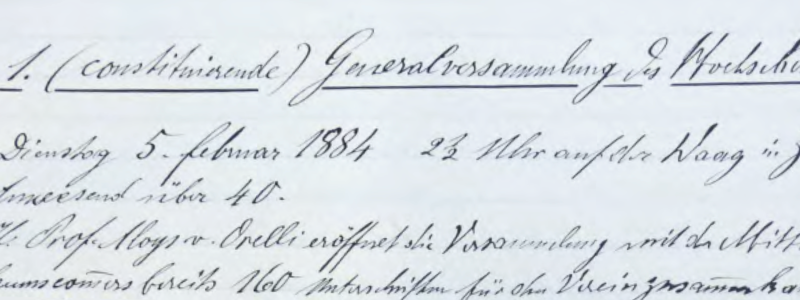 1. (constituirende) Generalversammlung des Hochschu
Dienstag 5. Februar 1884 2½ Uhr auf der Waag in Z
Anwesend über 40.
H. Prof. Aloys v. Orelli eröffnet die Versammlung mit der Mitth
bereits 160 Unterschriften für den Verein